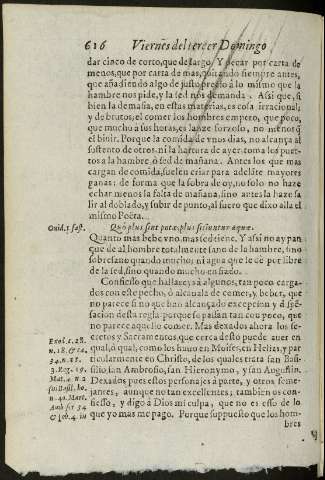 616 Viernes del tercer Domingo
dar cinco de corto, que de largo. Y pecar por carta de
menos, que por carta de mas, quitando siempre antes,
que añadiendo algo de justo precio à lo mismo que la
hambre nos pide, y la sed nos demanda. Assi que, si
bien la demasia, en estas materias, es cosa irracional,
y de brutos, el comer los hombres empero, que poco,
que mucho à sus horas, es lance forçoso, no menos q̃
el biuir. Porque la comida de vnos dias, no alcança al
sustento de otros, ni la hartura de ayer, toma los puer-
tos a la hambre, ò sed de mañana. Antes los que mas
cargan de comida, suelen criar para adelante mayores
ganas: de forma que la sobra de oy, no solo no haze
echar menos la falta de mañana, sino antes la haze sa
lir al doblado, y subir de punto, al suero que dixo alla el
mismo Poeta.
Ouid. 1. fast. Quò plus sunt potæ, plus sitiuntur aquæ.
Quanto mas bebe vno, mas sed tiene. Y assi no ay pan
que dè al hombre totalmente sano de la hambre, sino
sobresano quando mucho; ni agua que le dè por libre
de la sed, sino quando mucho en fiado.
Confiesso que hallareys à algunos, tan poco carga-
dos con este pecho, ò alcauala de comer, y beber, que
no parece si no que han alcançado excepcion y dispẽ
sacion desta regla porque se passan tan con poco, que
no parece aquello comer. Mas dexados ahora los se-
cretos y Sacramentos, que cerca desto puede auer en
Exod. c. 28. qual, ò qual, como los huuo en Moises, en Helias, y par
n. 18. & ca. ticularmente en Christo, de los quales trata san Bosi-
34. n. 28. lio, san Ambrosio, san Hieronymo, y san Augustin.
3. Reg. 19. Dexados pues estos personajes à parte, y otros seme-
Mat. 4. n. 2 jantes, aunque no tan excelentes; tambien os con-
fiesso, y digo à Dios mi culpa, que no es esso de lo
que yo mas me pago. Porque supuesto que los hom-
bres